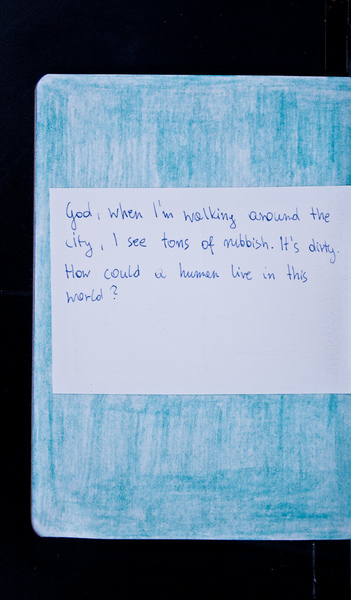 God, when I'm walking around the
city, I see tons of rubbish. It's dirty.
How could a human live in this
world?